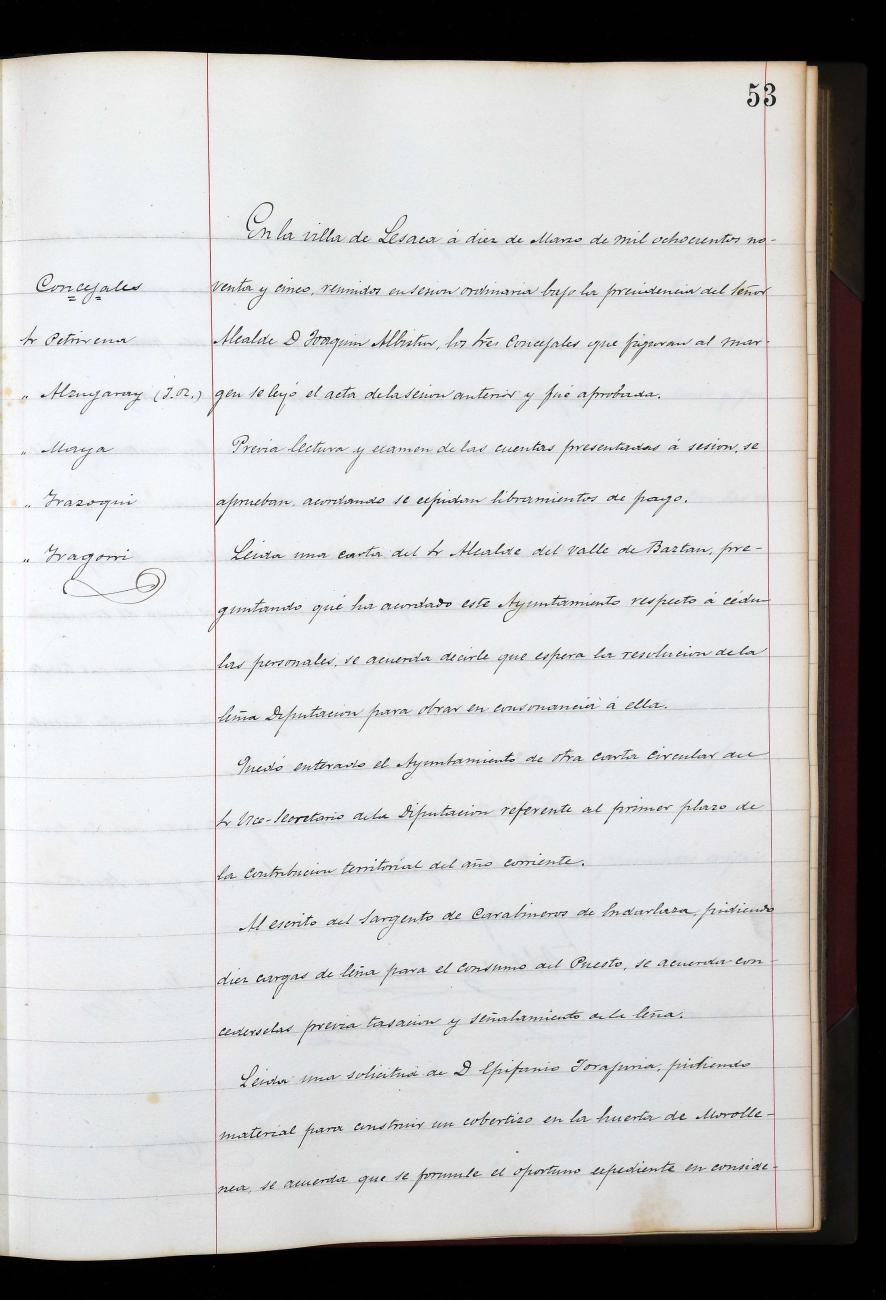 53
En la villa de Lesaca á diez de Marzo de mil ochocientos no-
Concejales
venta y cinco, reunidos en sesion ordinaria bajo la presidencia del Señor
Sr Petrirena
Alcalde D Joaquin Albistur, los tres Concejales que figuran al mar-
" Alzugaray
gen se leyó el acta de la sesion anterior y fué aprobada.
" Maya
Previa lectura y examen de las cuentas presentadas á sesion, se
" Irazoqui
aprueban, acordando se expidan libramientos de pago.
" Iragorri
Leida una carta del Sr Alcalde del valle de Baztan, pre-
guntando qué ha acordado este Ayuntamiento respecto á cédu-
las personales, se acuerda decirle que espera la resolucion de la
Diputacion para obrar en consonancia á ella.
Quedó enterado el Ayuntamiento de otra carta circular del
Sr Vice-Secretario de la Diputacion referente al primer plazo de
la contribucion territorial del año corriente.
Al escrito del Sargento de Carabineros de Endarlaza, pidiendo
diez cargas de leña para el consumo del Puesto, se acuerda con-
cederselas previa tasacion y señalamiento de la leña.
Leida una solicitud de D Epifanio pidiendo
material para construir un cobertizo en la huerta de Morolle-
nea, se acuerda que se formule el oportuno expediente en conside-